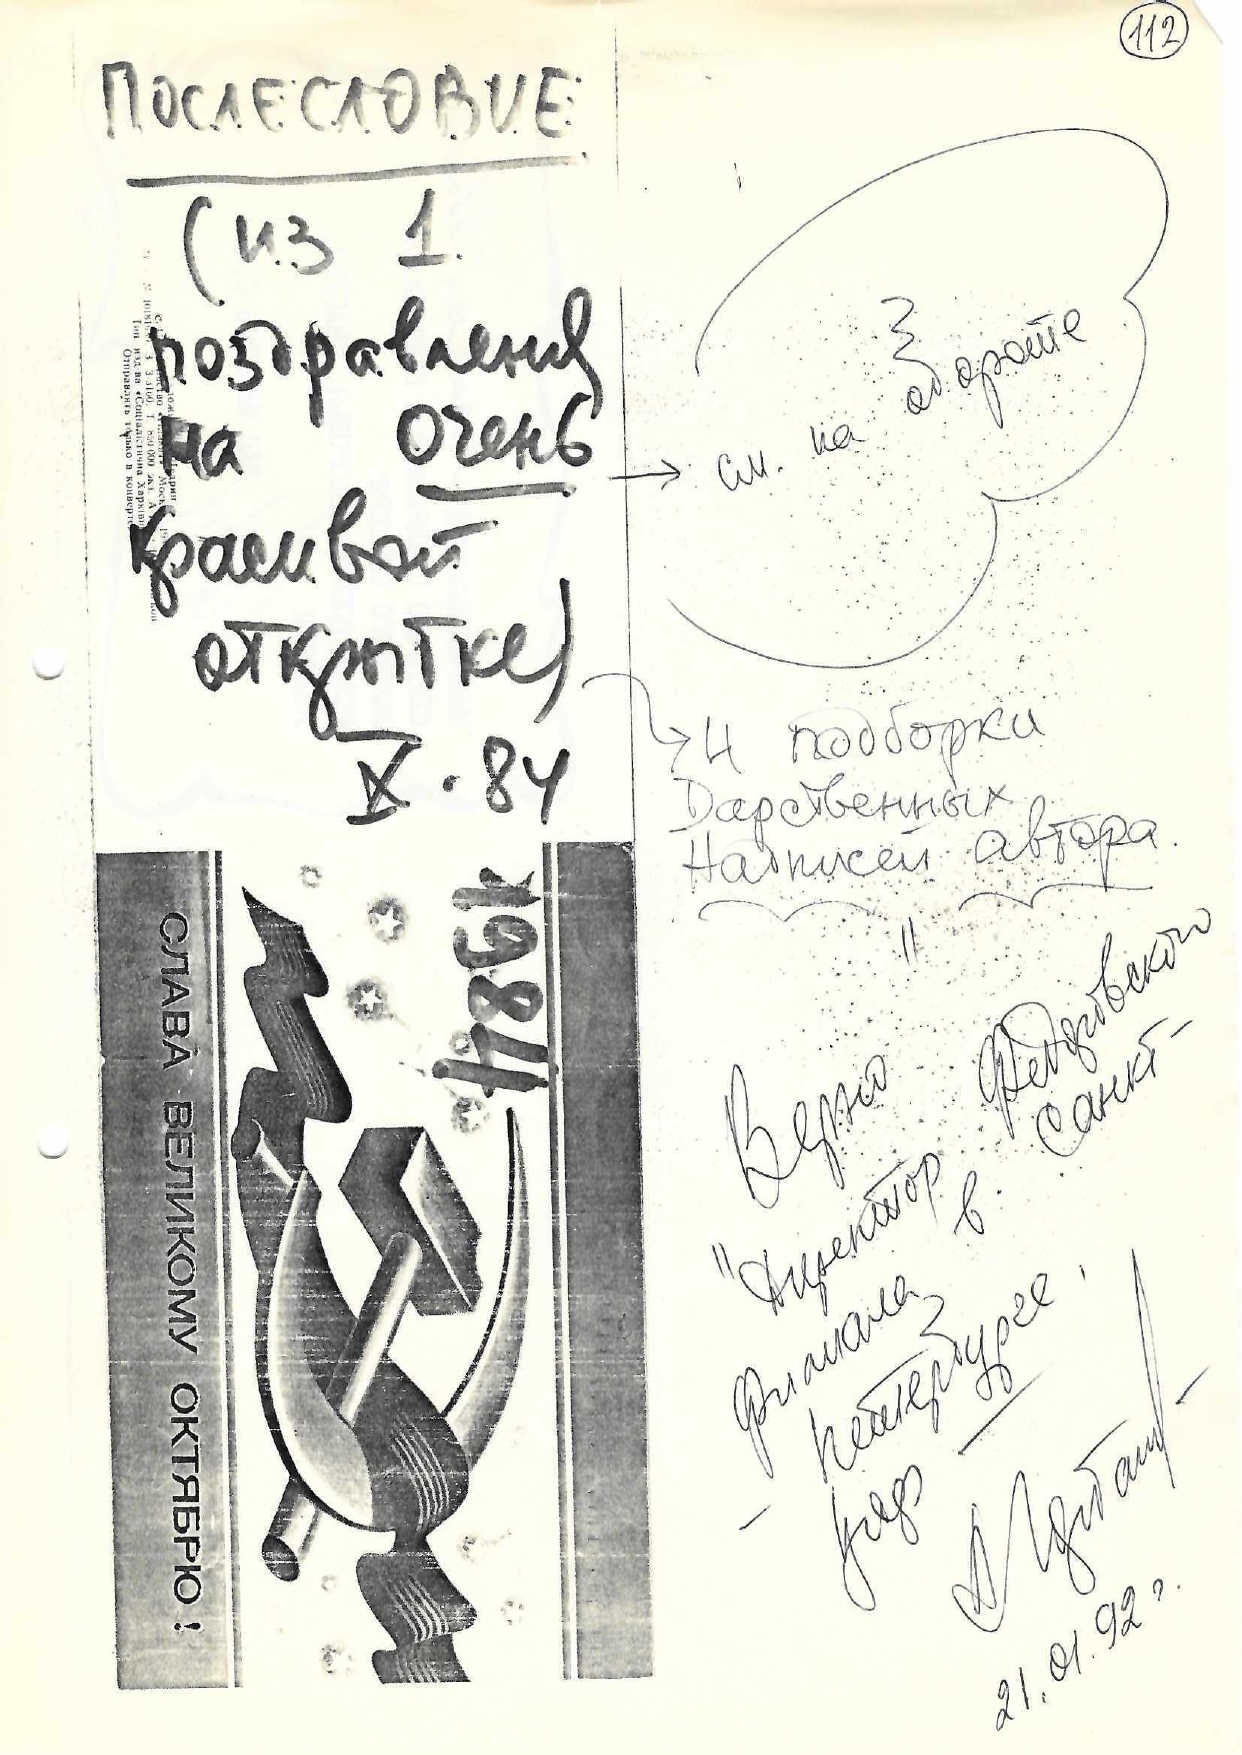 112
ПОСЛЕСЛОВИЕ
(из 1
поздравления
на очень
красивой
открытке)
X · 84
→ см. на обороте
4 подборки
Дарственных
Надписей автора.
СЛАВА ВЕЛИКОМУ ОКТЯБРЮ!
1984
Отправлять только в конверте
"
Верно
"Директор
филиала в Санкт-
Петербурге
21.01.92 г.